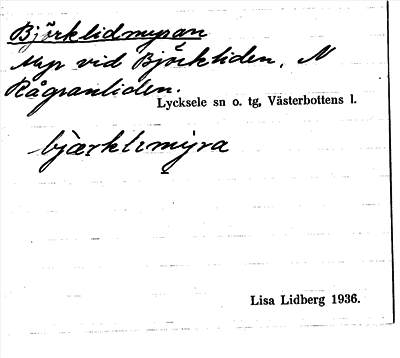 Björklidmyran
Myr vid Björkliden, N
Rågranliden.
Lycksele sn o. tg, Västerbottens l.
bjærklımýra
Lisa Lidberg 1936.